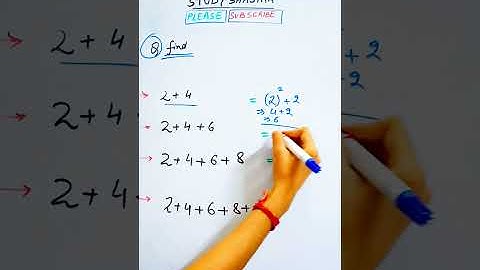 PLEASE SUBSCRIBE
Q) find
2+4 = (2)² + 2
⇒ 4+2
⇒ 6
2+4+6 =
2+4+6+8 =
2+4+6+8+
2 + 4
2 + 4
+ 2
2